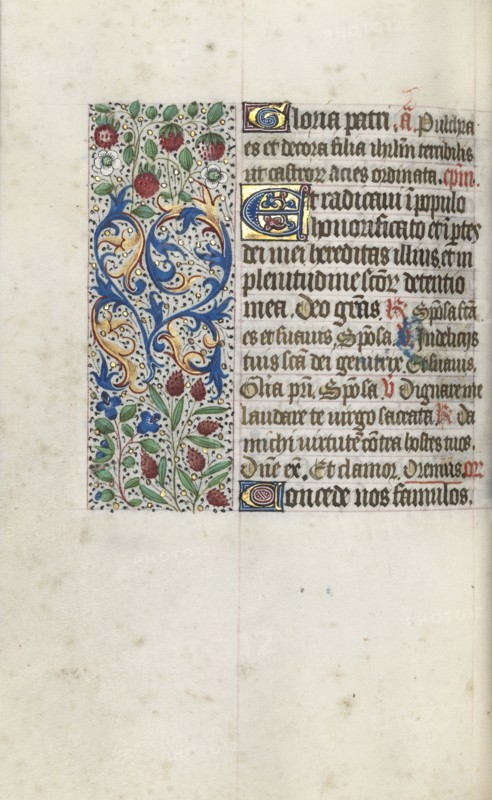 Gloria patri. a. Pulchra
es et decora filia ihrlm terribilis
ut castror acies ordinata. cpm.
Et radicaui i populo
honorificato et i ptes
dei mei hereditas illius et in
plenitudine scor detentio
mea. Deo gras R Sposa scta
es et suauis, Sposa V Indelicijs
tuis scta dei genitrix Et suauis,
Glia pri, Sposa V Dignare me
laudare te uirgo sacrata R da
michi uirtute contra hostes tuos.
Dne ex. Et clamor, Oremus, or
Concede nos famulos.